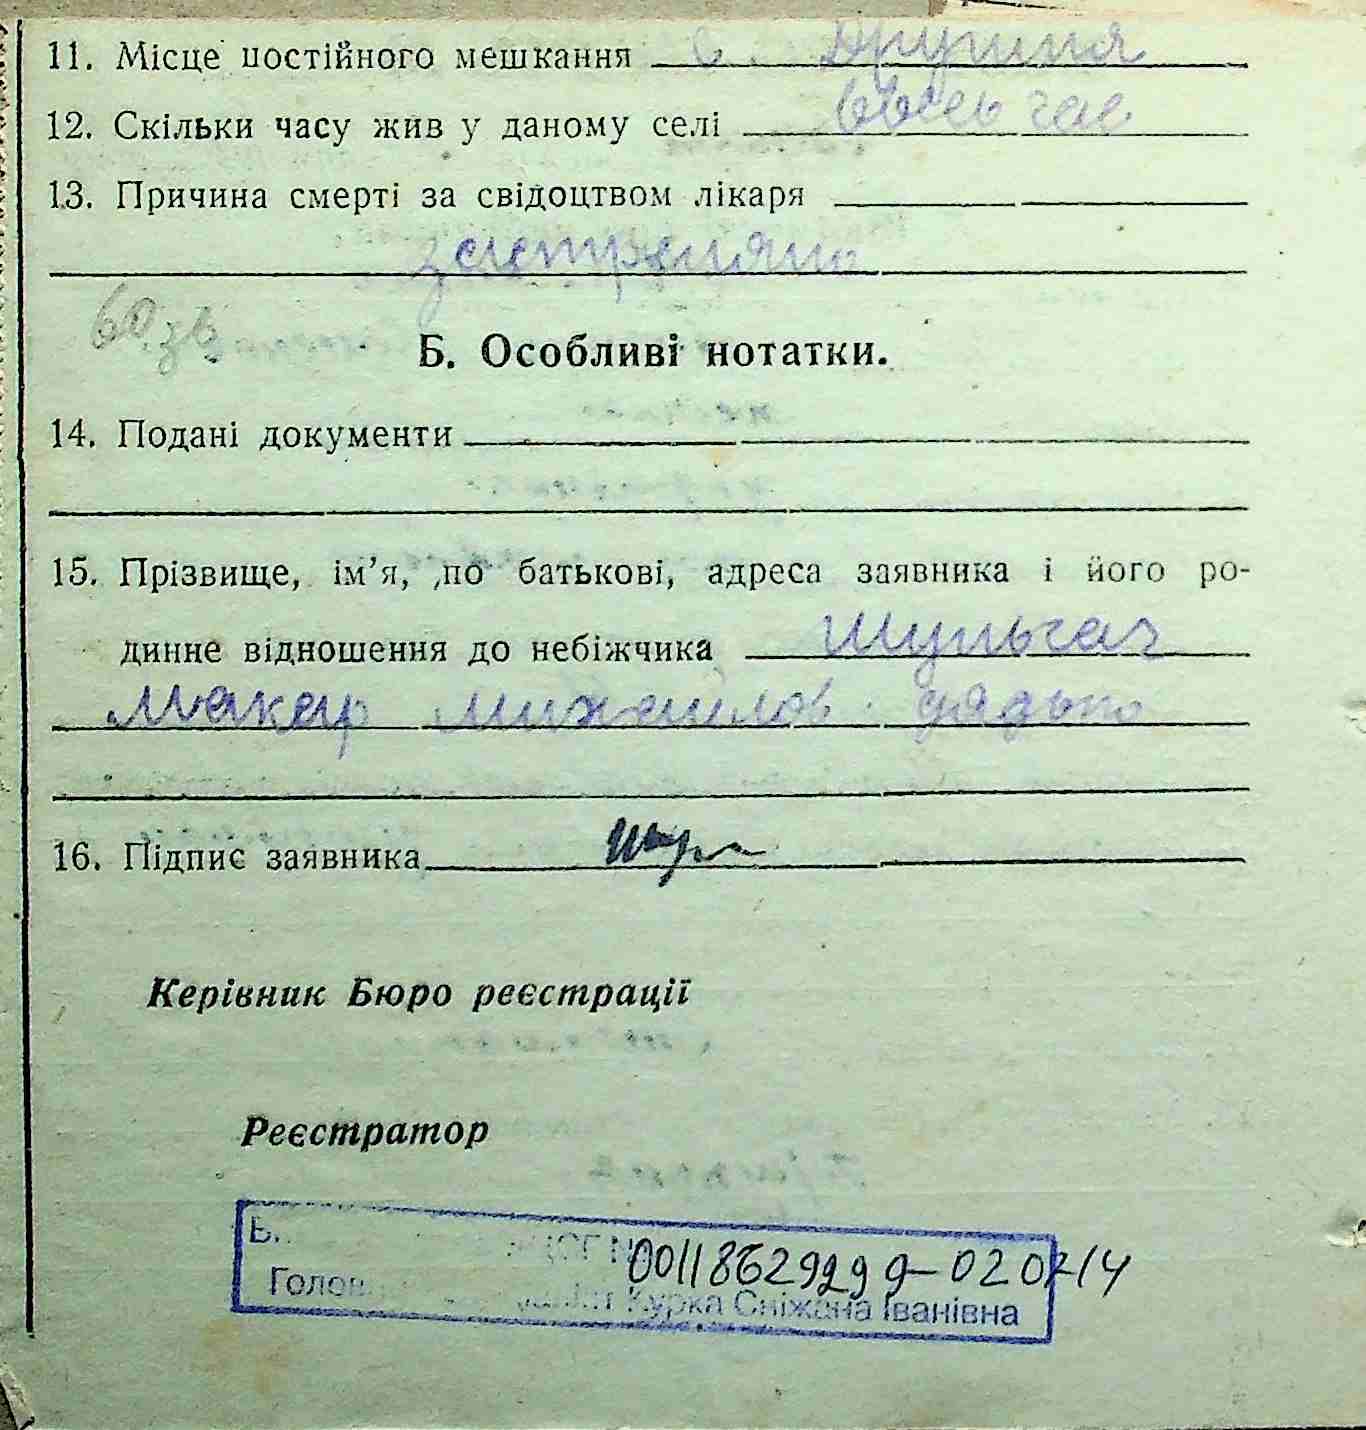 11. Місце постійного мешкання с. Друциля
12. Скільки часу жив у даному селі ввесь час
13. Причина смерті за свідоцтвом лікаря
застреляно
Б. Особливі нотатки.
14. Подані документи
15. Прізвище, ім'я, по батькові, адреса заявника і його ро-
динне відношення до небіжчика Шульгач
Макар Михайлов. дядько
16. Підпис заявника
Керівник Бюро реєстрації
Реєстратор
00118629299
Курка Сніжана Іванівна